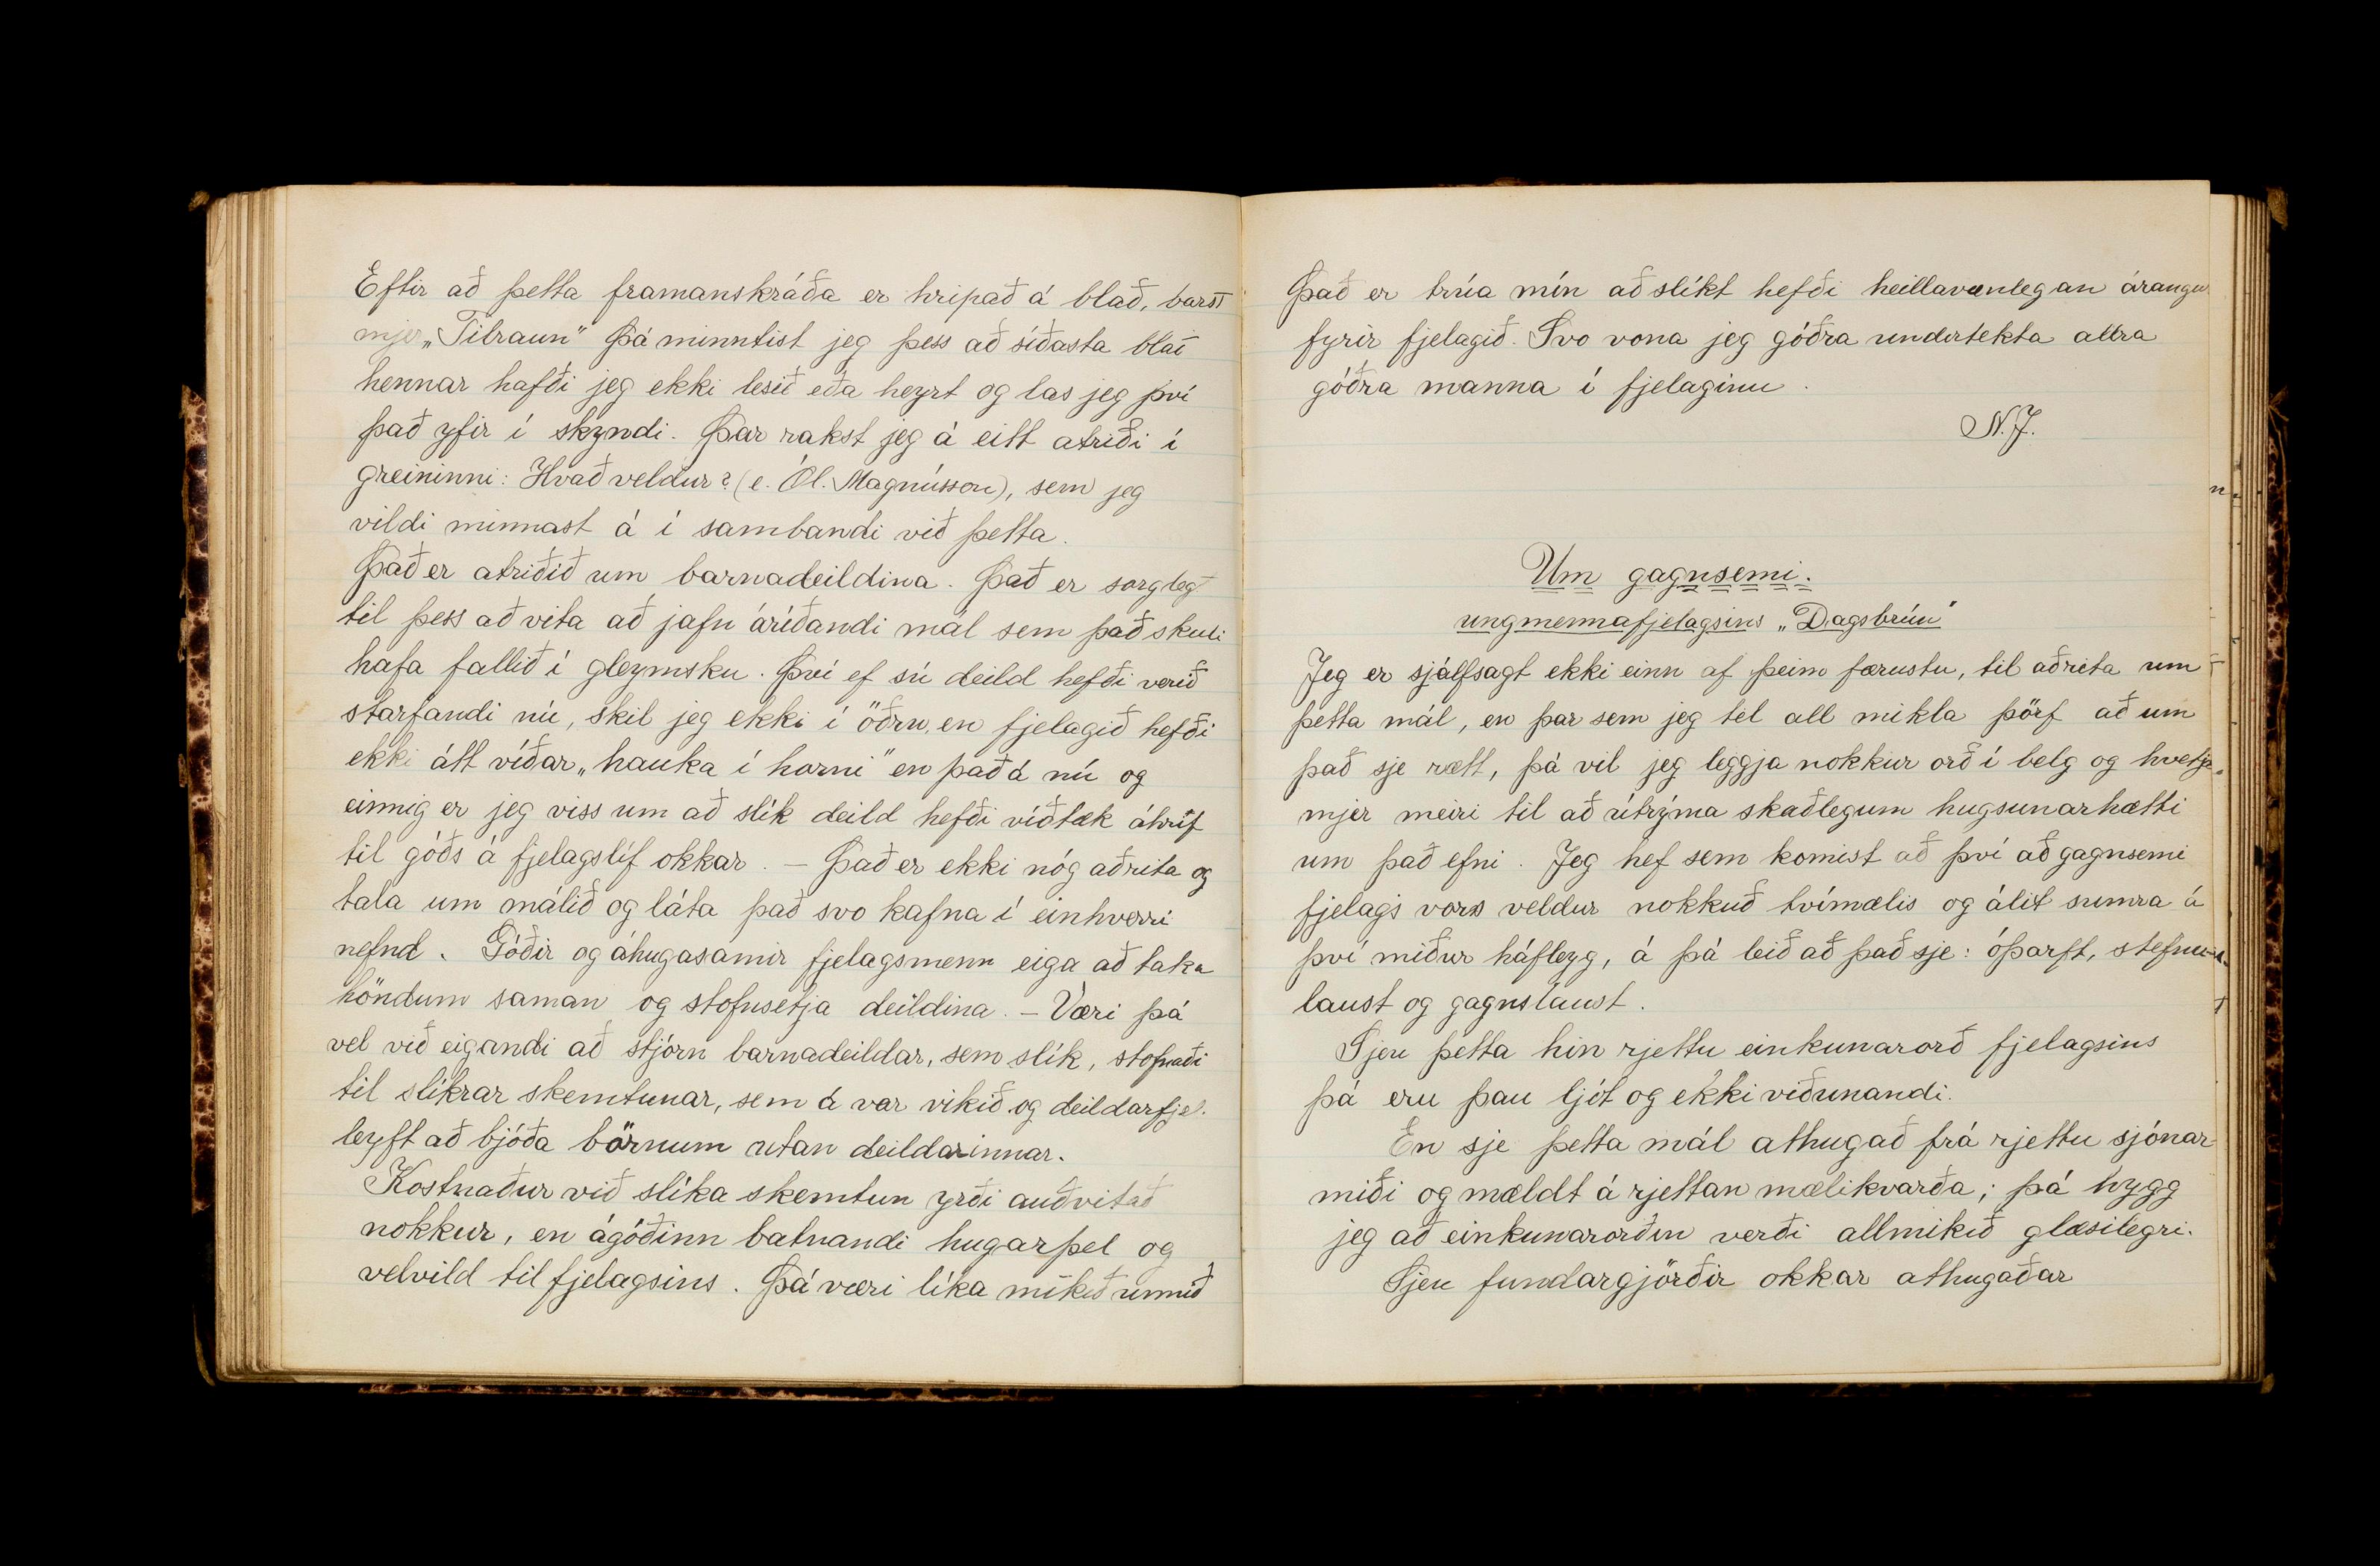 Eftir að þetta framanskráða er hripað á blað, barst
mjer „Tilraun“ Þá minntist jeg þess að síðasta blað
hennar hafði jeg ekki lesið eða heyrt og las jeg því
það yfir í skyndi. Þar rakst jeg á eitt atriði í
greininni: Hvað veldur? (e. Ól. Magnússon), sem jeg
vildi minnast á í sambandi við þetta.
Það er atriðið um barnadeildina. Það er sorglegt
til þess að vita að jafn áríðandi mál sem það skuli
hafa fallið í gleymsku. Því ef sú deild hefði verið
starfandi nú, skil jeg ekki í öðru, en fjelagið hefði
ekki átt víðar „hauka í horni“ en það á nú og
einnig er jeg viss um að slík deild hefði víðtæk áhrif
til góðs á fjelagslíf okkar. – Það er ekki nóg að rita og
tala um málið og láta það svo kafna í einhverri
nefnd. Góðir og áhugasamir fjelagsmenn eiga að taka
höndum saman og stofnsetja deildina. – Væri þá
vel við eigandi að stjórn barnadeildar, sem slík, stofnaði
til slíkrar skemtunar, sem á var vikið og deildarfjel.
leyft að bjóða börnum utan deildarinnar.
Kostnaður við slíka skemtun yrði auðvitað
nokkur, en ágóðinn batnandi hugarþel og
velvild til fjelagsins. Þá væri líka mikið unnið
Það er trúa mín að slíkt hefði heillavænlegan árangur
fyrir fjelagið. Svo vona jeg góðra undirtekta allra
góðra manna í fjelaginu.
N.J.
Um gagnsemi.
ungmennafjelagsins „Dagsbrún“
Jeg er sjálfsagt ekki einn af þeim færustu, til að rita um
þetta mál, en þar sem jeg tel all mikla þörf að um
það sje rætt, þá vil jeg leggja nokkur orð í belg og hvetja
mjer meiri til að útrýma skaðlegum hugsunarhætti
um það efni. Jeg hef sem komist að því að gagnsemi
fjelags vors veldur nokkuð tvímælis og álit sumra á
því miður háfleyg, á þá leið að það sje: óþarft, stefnu-
laust og gagnslaust.
Sjeu þetta hin rjettu einkunarorð fjelagsins
þá eru þau ljót og ekki viðunandi.
En sje þetta mál athugað frá rjettu sjónar-
miði og mældt á rjettan mælikvarða; þá hygg
jeg að einkunarorðin verði allmikið glæsilegri.
Sjeu fundargjörðir okkar athugaðar